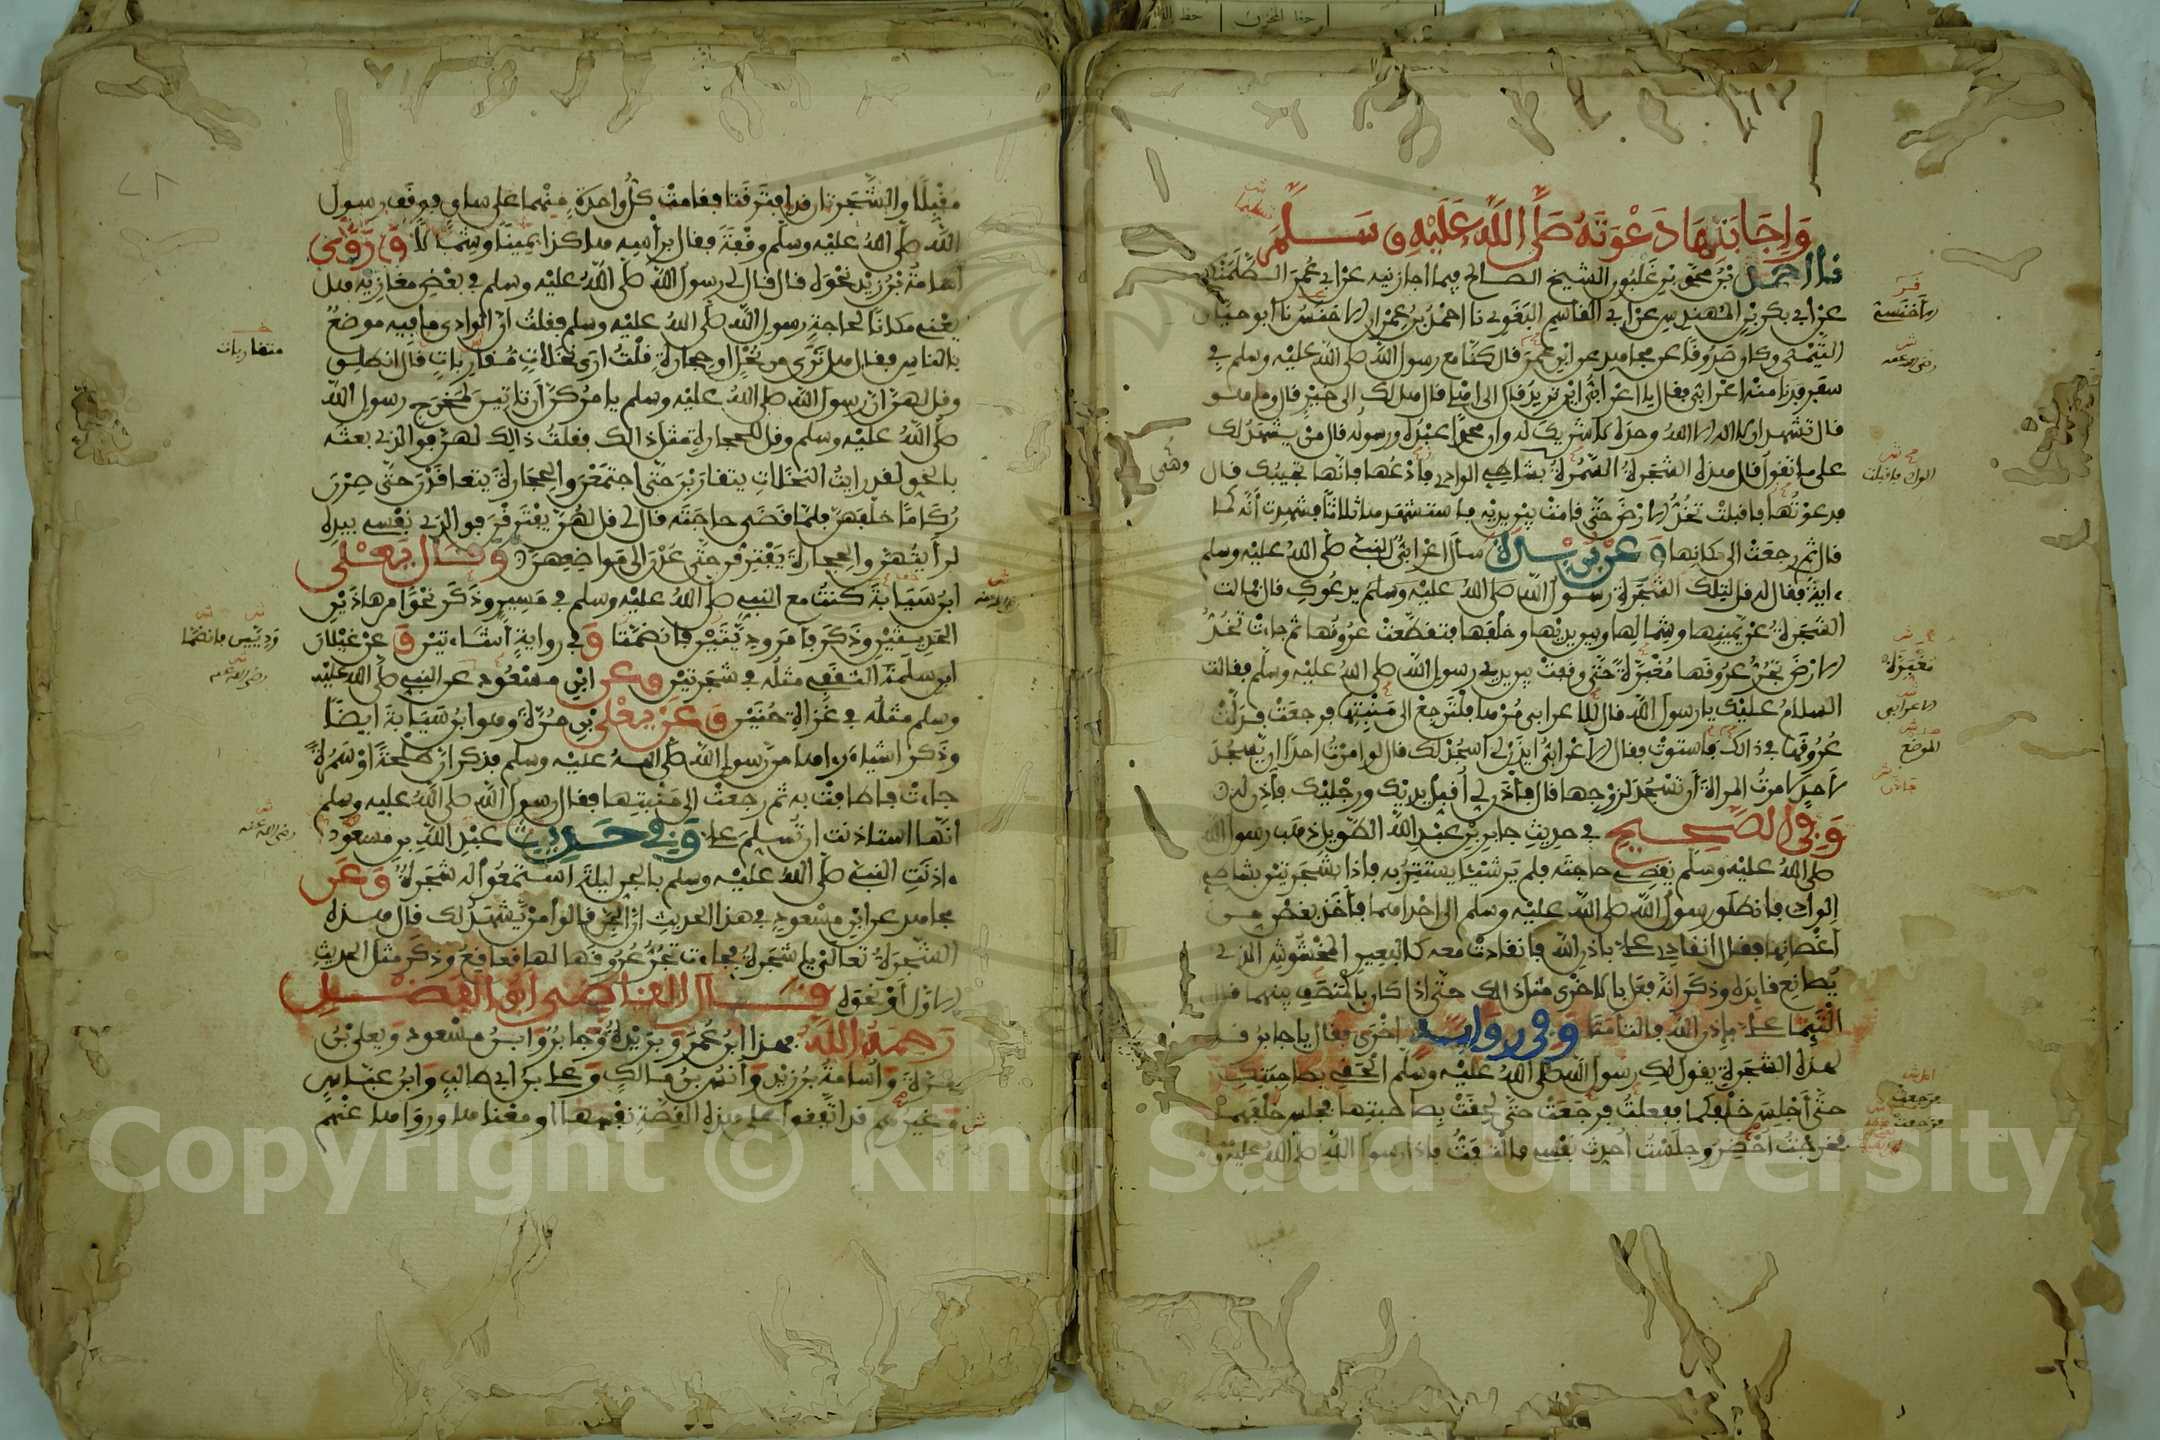 وَإِجَابَتِهَا دَعْوَتَهُ صَلَّى اللَّهُ عَلَيْهِ وَسَلَّمَ
نا احمد بْنُ محمد بْنِ غَلْبُونٍ الشيخ الصالح فيما اجازنيه عن ابي عُمَرَ الطَّلَمَنْكِي
عن ابي بكر بْنِ المهندس عن ابي القاسم البَغَوي نا احمدُ بْنُ عِمْرَانَ الاخنسُ نا ابو حيّان
التَّيْمي وكان صَدُوقًا عن مجاهد عن ابْنِ عُمَرَ قال كنّا مع رسول الله صلى الله عليه وسلم في
سفر فدنا منه اعرابي فقال يا اعرابيُّ ايْنَ تريدُ قال الى اهلي قال هل لك الى خَيْرٍ قال وما هو
قال تشهد ان لا اله الا اللهُ وحده لا شريك له وان محمدا عبْدُه ورسوله قال منْ يشهدُ لك
على ما تقول قال هذه الشجرةُ السَّمُرةُ بشاطئ الوادي فادْعُها فانّها تجيبُك قال
فدعوْتُها فاقبلتْ تَخُدُّ الارْضَ حتّى قامتْ بين يديْه فاستشهدها ثلاثًا فشهدت أنّه كما
قال ثم رجعَتْ الى مكانها وَعَنْ بُرَيْدَةَ سأل اعرابيٌّ النبيَّ صلى اللهُ عليه وسلم
ءايةً فقال له قل لتِلك الشجرةِ رسولُ الله صلى اللهُ عليه وسلم يدعُوكِ قال فمالت
الشجرةُ عن يمينها وشمالها وبين يديْها وخلْفها فتقطّعتْ عروقُها ثم جاءتْ تَخُدُّ
الارْضَ تجرُّ عروقَها مُغْبَرَّةً حتّى وقفتْ بين يدي رسول الله صلى الله عليْه وسلّم فقالت
السلامُ عليْك يا رسولَ الله قال الاعرابي مُرْها فلْتَرجِعْ الى مَنْبِتِها فرجعَتْ فدَلَّتْ
عُرُوقَها في ذالك فاستوتْ فقال الاعْرابيُّ ايذَنْ لي اسجُدْ لك قال لو امرْتُ احدًا ان يّسجُدَ
لأحدٍ لأمرتُ المراةَ أن تسْجُدَ لزوْجِها قال فأْذَنْ لي أُقبِّلْ يديْك ورجْليْك فأذِن له
وَفِي الصَّحِيحِ في حديث جابر بْنِ عبْدِ الله الطّويل ذهب رسول الله
صلى اللهُ عليْه وسلّم يقضي حاجتَه فلم يَرَ شيْئا يستتِرُ به فاذا بشجرتيْن بشاطئ
الوادي فانطلق رسولُ الله صلى الله عليه وسلم الى احْداهما فأخَذَ بغصْنٍ من
أغْصانِها فقال انقادي عليّ باذن الله فانقادتْ معه كالبعير المخْشُوشِ الذي
يُصانعُ قائدَه وذكرَ أنّه فعل بالاخرى مثل ذالك حتى اذا كان بالمنْصَفِ بينهما قال
الْتَئِما عليّ باذن الله فالتأمتا وَفِي رِوَايَةٍ أخْرَى فقال يا جابرُ قل
لهذه الشجرة يقول لكِ رسولُ الله صلى اللهُ عليْه وسلّم الْحَقي بصاحبتكِ
حتّى أجْلِسَ خلْفكما ففعلتُ فرجَعَتْ حتى لحِقَتْ بصاحبتِها فجلس خلْفهما
فخرجْتُ أحْضِرُ وجلسْتُ أحدِّثُ نفْسي فالْتفَتُّ فاذا رسولُ الله صلى اللهُ عليْه و
الاخنسي
رضي الله عنه
وهي
الوادي فاقبلت
مُغِيرَةً
الاعرابي
الموضع
فرجعت
مُقْبِلًا والشَّجَرتان قد افتَرقَتا فقامتْ كلُّ واحدةٍ مّنْهما على ساق فوقف رسول
الله صلى اللهُ عليه وسلم وقْفةً فقال برأْسِه هاكذا يمينًا وشمالًا وَرَوَى
أُسَامةُ بْنُ زَيْد نحْوَه قال قال لي رسولُ الله صلى اللهُ عليْه وسلم في بعْضِ مغازيه هل
يعْني مَكانًا لحاجةِ رسولِ الله صلى اللهُ عليه وسلم فقلتُ انّ الوادي ما فيه موضعٌ
بالناس فقال هل تَرَى من نّخْلٍ او حجارةٍ قلْتُ ارَى نخَلاتٍ مُّتقارباتٍ قال انطلِق
وقل لهنّ انّ رسولَ الله صلى اللهُ عليْه وسلم يامرُكُنّ أن تاتين لمخْرَجِ رسولِ الله
صلّى اللهُ عليْه وسلم وقل للحجارةِ مثل ذالك فقلتُ ذالك لهنّ فوالذي بعثه
بالحق لقد رايتُ النخَلاتِ يتقارَبْنَ حتّى اجتمَعْنَ والحجارةَ يَتعاقَدْنَ حتى صِرْنَ
رُكامًا خلْفهنّ فلمّا قضَى حاجتَه قال لي قل لهُنّ يفْتَرِقْنَ فوالذي نفْسي بيده
لرأيتُهنّ والحجارةَ يفْتِرقْنَ حتّى عُدْنَ الى مَواضِعِهِنّ وَقَالَ يَعْلَى
ابنُ سَيَابةَ كنتُ مع النبي صلى اللهُ عليه وسلم في مَسيرٍ وذَكَر نحْوًا من هاذَيْنِ
الحديثَيْنِ وذَكَرَ فأمَر وديّتَيْن فانضمّتا وَفي روايةٍ أَشَاءتيْن وَعَنْ غيْلانَ
ابنِ سَلَمةَ الثقفي مثلُه في شجَرتيْن وعن ابْنِ مسْعُود عن النبي صلى الله عليْه
وسلم مثلُه في غزاةِ حُنَيْن وَعَنْ يَعْلَى بْنِ مُرّةَ وهو ابنُ سَيَابةَ ايضًا
وذَكَر أشياءَ رءاها من رسول الله صلى اللهُ عليه وسلم فذكر انّ طلْحةً أوْ سَمُرةً
جاءتْ فاطافتْ به ثم رجعتْ الى مَنْبِتِها فقال رسولُ الله صلى اللهُ عليه وسلم
انّها استاذنت ان تُسلِّمَ عليّ وَفِي حَدِيثِ عبْدِ الله بن مسعُود
ءاذنَتِ النبيَّ صلّى اللهُ عليْه وسلم بالجن ليلةَ اسْتمعُوا له شجرةٌ وَعَنْ
مجاهد عن ابن مسْعود في هذا الحديث انّ الجنّ قالوا مَنْ يّشْهَدُ لك قال هذه
الشجرةُ تعاليْ يا شجرةُ فجاءت تجُرُّ عُروقَها لها قَعاقِعُ وذكَر مثل الحديثِ
الأوّل أوْ نحْوَه قَالَ الْقَاضِي أَبُو الْفَضْلِ
رَحِمَهُ اللَّهُ فهذا ابنُ عُمَرَ وَبُرَيْدةُ وَجابرٌ وَابنُ مسْعود ويعلى بْنُ
مُرّةَ وأُسامةُ بنُ زيْد وَأنسُ بنُ مالكٍ وَعليّ بن أبي طالبٍ وَابنُ عبّاسٍ
وغيرُهم قد اتّفقوا على هذه القصّةِ نفْسِها او معْناها ورواها عنْهم
متقاربات
وَدِيَّتَيْنِ فانضمّتا
رضي الله عنه
رضي الله عنه
Copyright © King Saud University